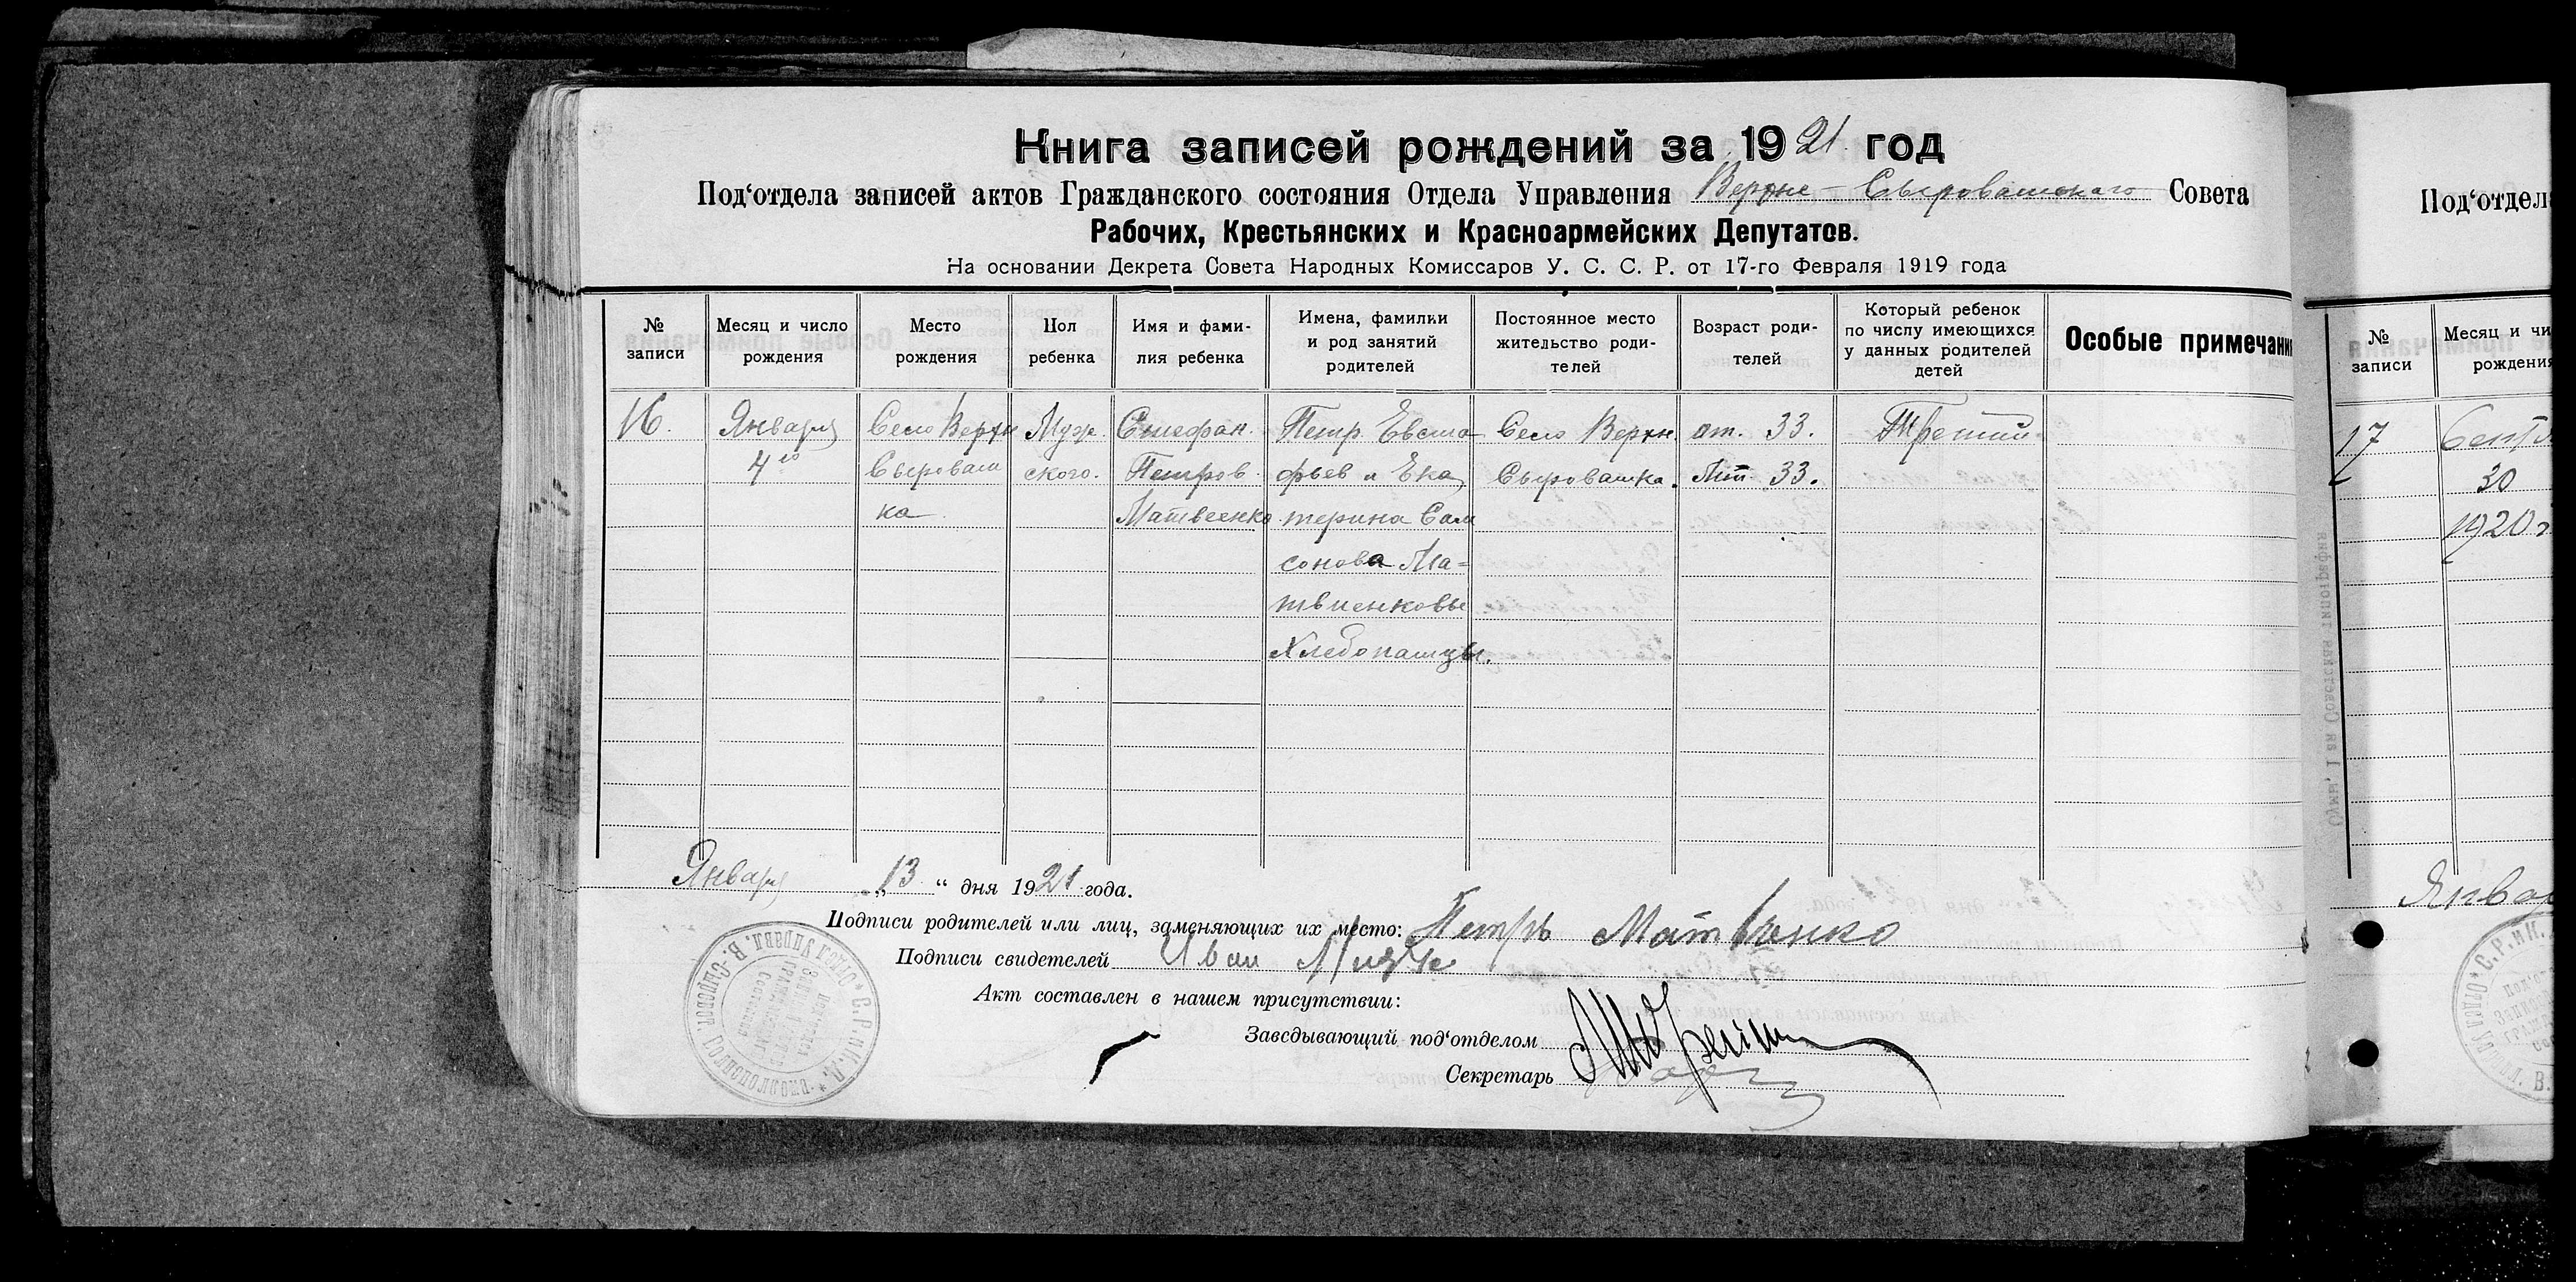 Книга записей рождений за 1921 год
Под‘отдела записей актов Гражданского состояния Отдела Управления Верхне-Сыроватского Совета
Рабочих, Крестьянских и Красноармейских Депутатов.
На основании Декрета Совета Народных Комиссаров У. С. С. Р. от 17-го Февраля 1919 года
№ записи
Месяц и число рождения
Место рождения
Пол ребенка
Имя и фами-
лия ребенка
Имена, фамилии
и род занятий
родителей
Постоянное место
жительство роди-
телей
Возраст роди-
телей
Который ребенок
по числу имеющихся
у данных родителей
детей
Особые примечани
16.
Января
4го
Село Верхн
Сыроват
ка
Муж
ского.
Стефан
Петров
Матвеенко
Петр Евста
фьев и Ека
терина Сам
сонова Ма=
твиенковы
Хлебопашцы.
Село Верхн.
Сыроватка.
от. 33.
Мт. 33.
Третий
Января „13“ дня 1921 года.
Подписи родителей или лиц, заменяющих их место: Петръ Матвіенко
Подписи свидетелей Иван
Акт составлен в нашем присутствии:
Заведывающий под‘отделом
Секретарь
Под‘отдел
№ записи
Месяц и чи
рождения
17
Сентя
30
1920 г
Январ